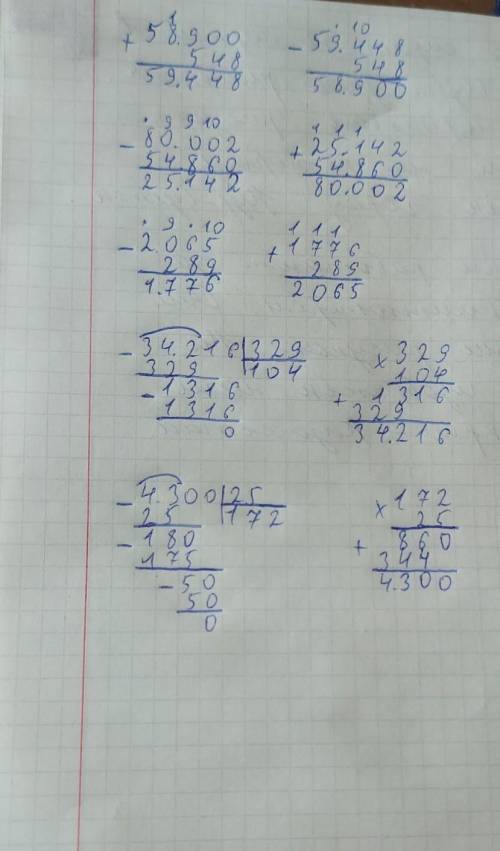 1
+ 58.900
548
59.448
. 10
- 59.448
548
58.900
. 9 9 10
- 80.002
54.860
25.142
1 1 1
+ 25.142
54.860
80.002
. 9 . 10
- 2.065
289
1.776
1 1 1
+ 1776
289
2065
- 34.216 | 329
329 104
- 1316
1316
0
x 329
104
+ 1316
329
34.216
- 4.300 | 25
25 172
- 180
175
- 50
50
0
x 172
25
+ 860
344
4.300